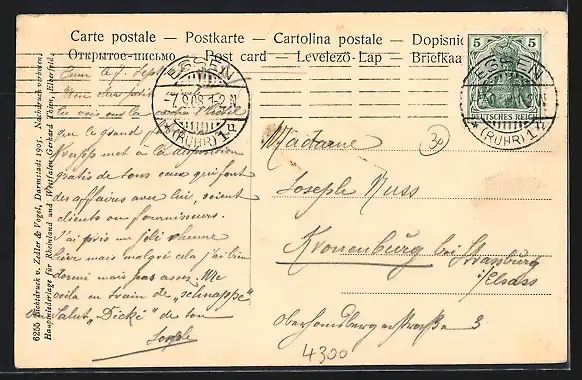 Carte postale — Postkarte — Cartolina postale — Dopisnic
Открытое-письмо — Post card — Levelező-Lap — Briefkaa
5 5
DEUTSCHES REICH
ESSEN
-7.9.08.1-2N.
(RUHR) 1
ESSEN
(RUHR) 1
6255 Lichtdruck v. Zedler & Vogel, Darmstadt 1905. Nachdruck verboten.
Hauptniederlage für Rheinland und Westfalen Gerhard Thien, Elberfeld.
le 7. Sept.
Tu vois sur la carte l'hôtel
que le grand
Krupp met à la disposition
gratis de tous ceux qui font
des affaires avec lui, soient
clients ou fournisseurs.
J'ai pris un joli rhume
hier mais malgré cela j'ai bien
dormi mais pas assez. Me
voilà en train de „schnappe"
Salut „Dické" de ton
Joseph
30
Madame
Joseph Nuss
Kronenburg bei Strassburg
i/Elsass
Oberhausbergerstraße 3
4300